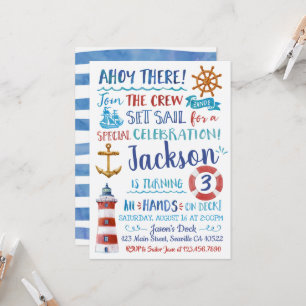 AHOY THERE!
Join THE CREW AND
SET SAIL for a
SPECIAL CELEBRATION!
Jackson
IS TURNING 3
All HANDS ON DECK!
SATURDAY, AUGUST 16 AT 2:00PM
Jason's Dock
123 Main Street, Seaville CA 10522
RSVP to Sailor Jane at +123.456.7890